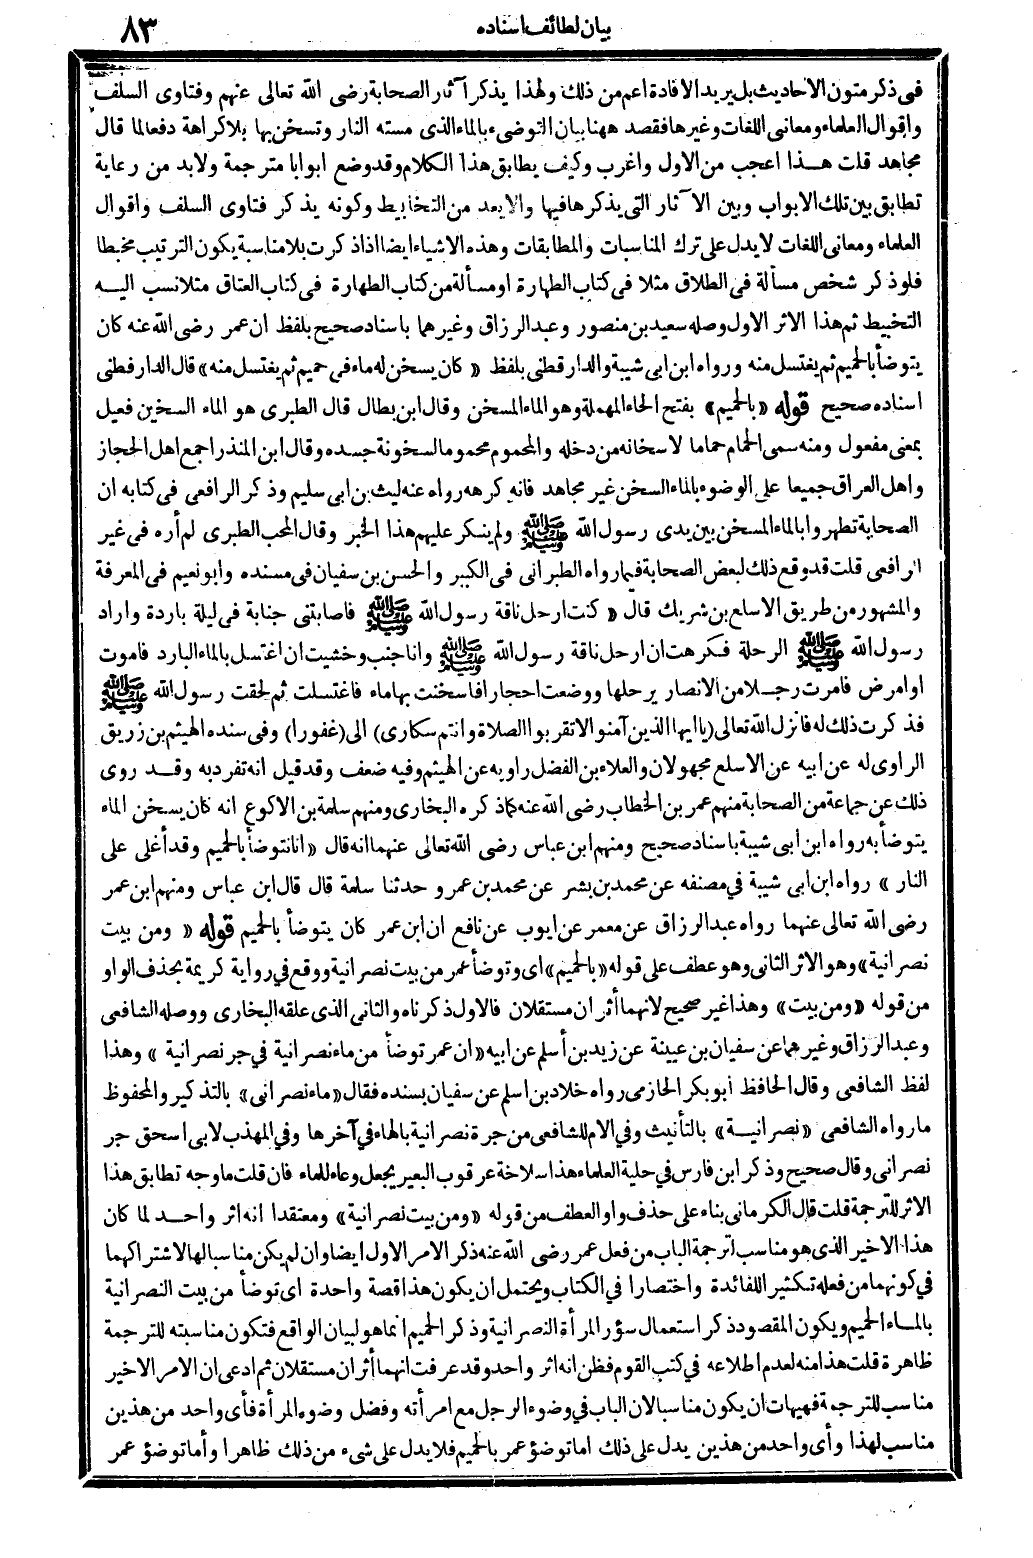 بيان لطائف اسناده ٨٣
فى ذكر متون الاحاديث بل يريد الافادة اعم من ذلك ولهذا يذكر آثار الصحابة رضى الله تعالى عنهم وفتاوى السلف
واقوال العلماء ومعانى اللغات وغيرها فقصد ههنا بيان التوضىء بالماء الذى مسته النار وتسخن بها بلا كراهة دفعا لما قال
مجاهد قلت هذا اعجب من الاول واغرب وكيف يطابق هذا الكلام وقد وضع ابوابا مترجمة ولابد من رعاية
تطابق بين تلك الابواب وبين الآثار التى يذكرها فيها والا يعد من التخابيط وكونه يذكر فتاوى السلف واقوال
العلماء ومعانى اللغات لا يدل على ترك المناسبات والمطابقات وهذه الاشياء ايضا اذا ذكرت بلا مناسبة يكون الترتيب مخبطا
فلو ذكر شخص مسألة فى الطلاق مثلا فى كتاب الطهارة او مسألة من كتاب الطهارة فى كتاب العتاق مثلا نسب اليه
التخبيط ثم هذا الاثر الاول وصله سعيد بن منصور وعبد الرزاق وغيرهما باسناد صحيح بلفظ ان عمر رضى الله عنه كان
يتوضأ بالحميم ثم يغتسل منه ورواه ابن ابى شيبة والدارقطنى بلفظ « كان يسخن له ماء فى حميم ثم يغتسل منه» قال الدارقطنى
اسناده صحيح قوله «بالحميم» بفتح الحاء المهملة وهو الماء المسخن وقال ابن بطال قال الطبرى هو الماء السخين فعيل
بمعنى مفعول ومنه سمى الحمام حماما لاسخانه من دخله والمحموم محموما لسخونة جسده وقال ابن المنذر اجمع اهل الحجاز
واهل العراق جميعا على الوضوء بالماء السخن غير مجاهد فانه كرهه رواه عنه ليث بن ابى سليم وذكر الرافعى فى كتابه ان
الصحابة تطهروا بالماء المسخن بين يدى رسول الله ﷺ ولم ينكر عليهم هذا الخبر وقال المحب الطبرى لم أره فى غير
الرافعى قلت قد وقع ذلك لبعض الصحابة فيما رواه الطبرانى فى الكبير والحسن بن سفيان فى مسنده وابو نعيم فى المعرفة
والمشهور من طريق الاسلع بن شريك قال « كنت ارحل ناقة رسول الله ﷺ فاصابتنى جنابة فى ليلة باردة واراد
رسول الله ﷺ الرحلة فكرهت ان ارحل ناقة رسول الله ﷺ وانا جنب وخشيت ان اغتسل بالماء البارد فاموت
او امرض فامرت رجلا من الانصار يرحلها ووضعت احجارا فاسخنت بها ماء فاغتسلت ثم لحقت رسول الله ﷺ
فذكرت ذلك له فانزل الله تعالى (يا ايها الذين آمنوا لا تقربوا الصلاة وانتم سكارى) الى (غفورا) وفى سنده الهيثم بن زريق
الراوى له عن ابيه عن الاسلع مجهولان والعلاء بن الفضل راويه عن الهيثم وفيه ضعف وقد قيل انه تفرد به وقد روى
ذلك عن جماعة من الصحابة منهم عمر بن الخطاب رضى الله عنه كما ذكره البخارى ومنهم سلمة بن الاكوع انه كان يسخن الماء
يتوضأ به رواه ابن ابى شيبة باسناد صحيح ومنهم ابن عباس رضى الله تعالى عنهما انه قال «انا نتوضأ بالحميم وقد أغلى على
النار» رواه ابن ابى شيبة في مصنفه عن محمد بن بشر عن محمد بن عمرو حدثنا سلمة قال قال ابن عباس ومنهم ابن عمر
رضى الله تعالى عنهما رواه عبد الرزاق عن معمر عن ايوب عن نافع ان ابن عمر كان يتوضأ بالحميم قوله « ومن بيت
نصرانية» وهو الاثر الثانى وهو عطف على قوله «بالحميم» اى وتوضأ عمر من بيت نصرانية ووقع في رواية كريمة بحذف الواو
من قوله «ومن بيت» وهذا غير صحيح لانهما أثران مستقلان فالاول ذكرناه والثانى الذى علقه البخارى ووصله الشافعى
وعبد الرزاق وغيرهما عن سفيان بن عيينة عن زيد بن أسلم عن ابيه «ان عمر توضأ من ماء نصرانية في جر نصرانية» وهذا
لفظ الشافعى وقال الحافظ ابو بكر الحازمى رواه خلاد بن اسلم عن سفيان بسنده فقال «ماء نصرانى» بالتذكير والمحفوظ
ما رواه الشافعى «نصرانية» بالتأنيث وفي الام للشافعى من جرة نصرانية بالهاء في آخرها وفي المهذب لابى اسحق جر
نصرانى وقال صحيح وذكر ابن فارس في حلية العلماء هذا سلاخة عرقوب البعير يجعل وعاء للماء فان قلت ما وجه تطابق هذا
الاثر للترجمة قلت قال الكرمانى بناء على حذف واو العطف من قوله «ومن بيت نصرانية» ومعتقدا انه اثر واحد لما كان
هذا الاخير الذى هو مناسب لترجمة الباب من فعل عمر رضى الله عنه ذكر الامر الاول ايضا وان لم يكن مناسبا لها لاشتراكهما
في كونهما من فعله تكثير اللفائدة واختصارا في الكتاب ويحتمل ان يكون هذا قصة واحدة اى توضأ من بيت النصرانية
بالماء الحميم ويكون المقصود ذكر استعمال سؤر المرأة النصرانية وذكر الحميم انما هو لبيان الواقع فتكون مناسبته للترجمة
ظاهرة قلت هذا منه لعدم اطلاعه في كتب القوم فظن انه اثر واحد وقد عرفت انهما أثران مستقلان ثم ادعى ان الامر الاخير
مناسب للترجمة فهيهات ان يكون مناسبا لان الباب في وضوء الرجل مع امرأته وفضل وضوء المرأة فأى واحد من هذين
مناسب لهذا وأى واحد من هذين يدل على ذلك اما توضؤ عمر بالحميم فلا يدل على شىء من ذلك ظاهرا وأما توضؤ عمر